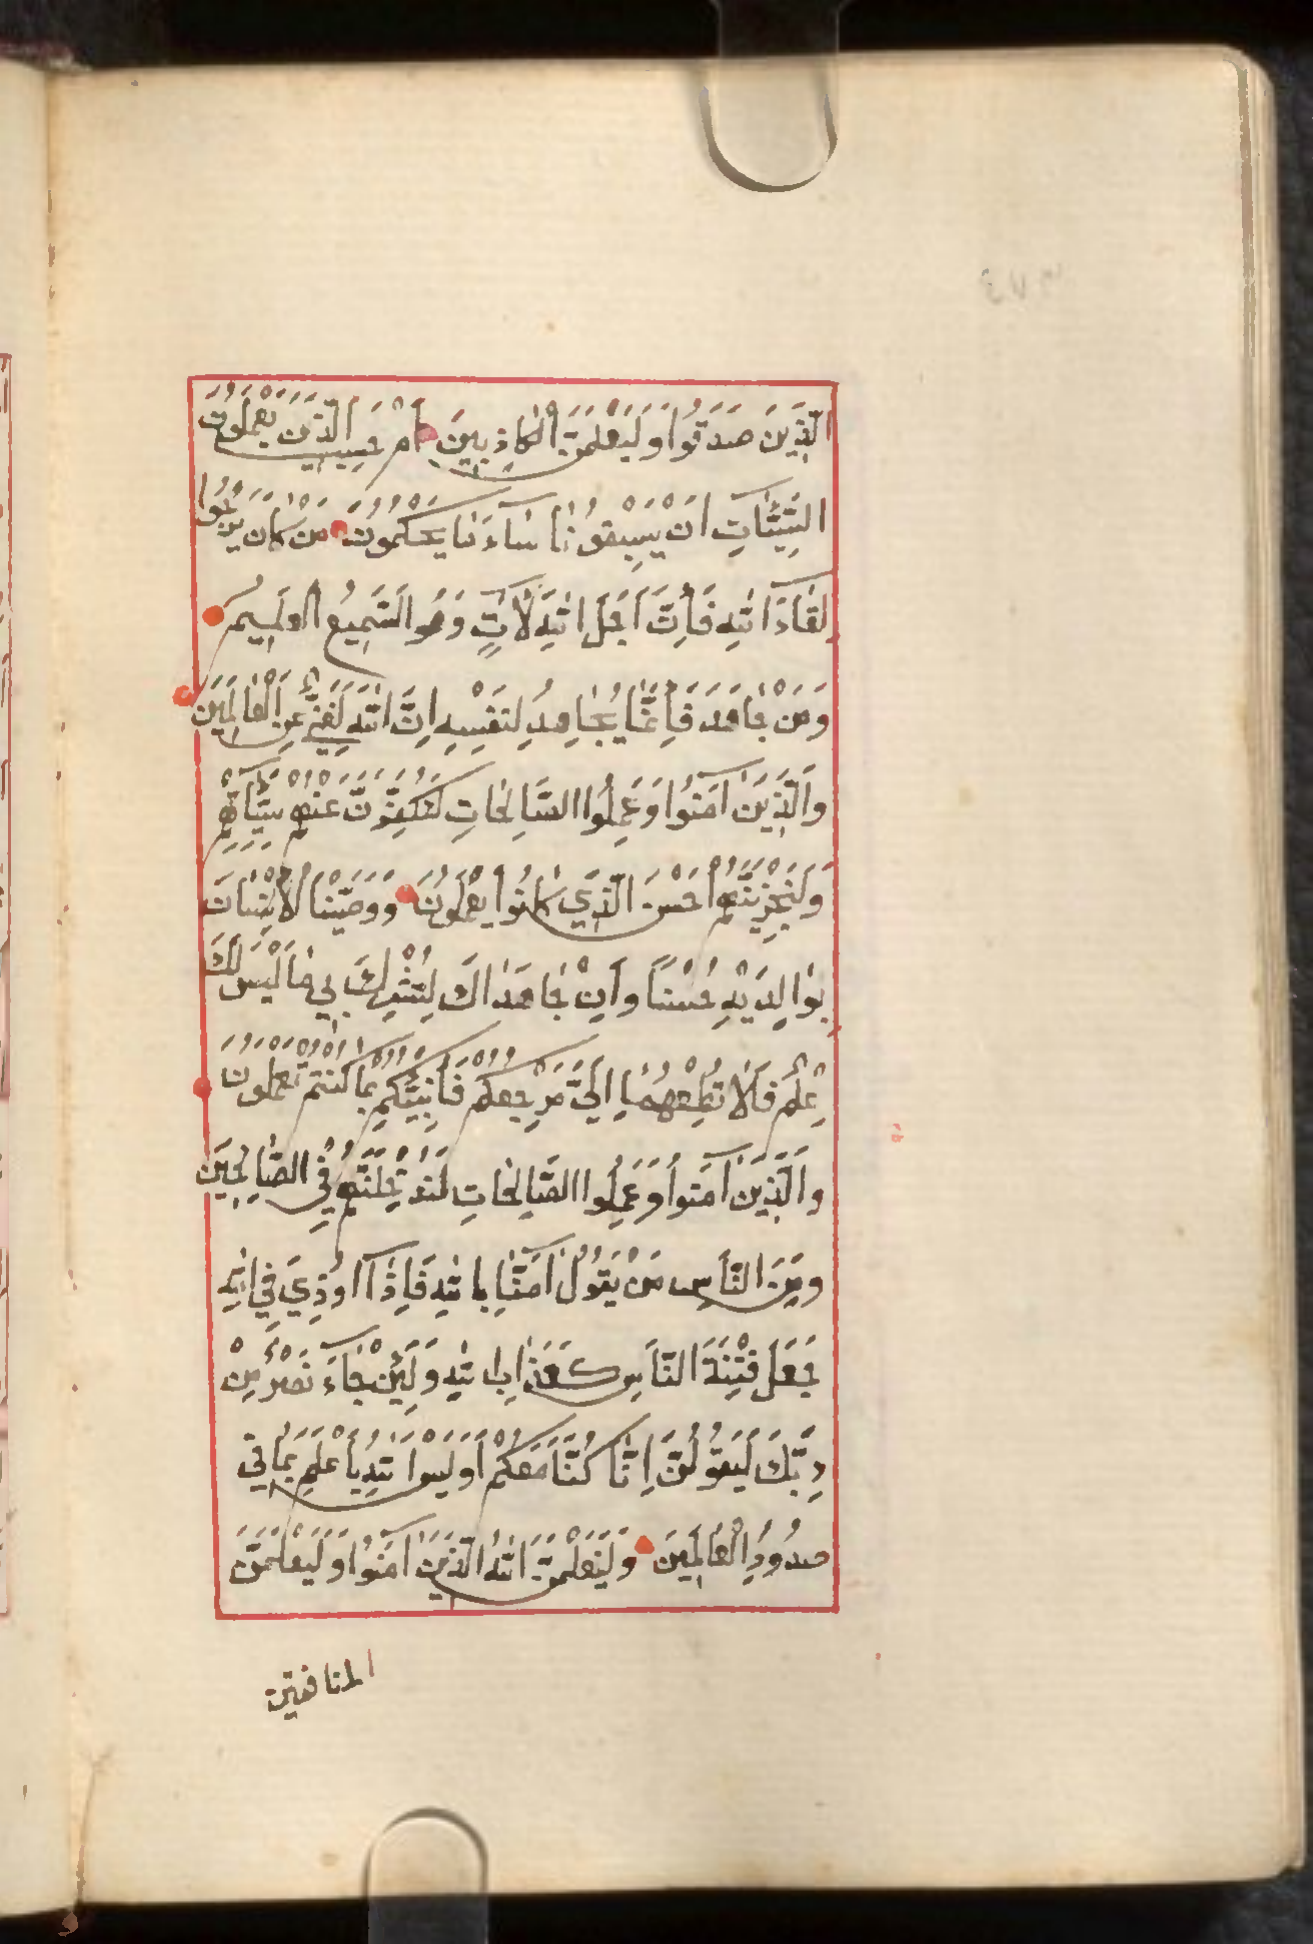 الَّذِينَ صَدَقُوا وَلَيَعْلَمَنَّ الْكَاذِبِينَ أَمْ حَسِبَ الَّذِينَ يَعْمَلُونَ
السَّيِّئَاتِ اَنْ يَسْبِقُونَا سَآءَ مَا يَحْكُمُونَ مَنْ كَانَ يَرْجُوا
لِقَآءَ اللهِ فَاِنَّ اَجَلَ اللهِ لَاٰتٍ وَهُوَ السَّمِيعُ الْعَلِيمُ
وَمَنْ جَاهَدَ فَاِنَّمَا يُجَاهِدُ لِنَفْسِهِ اِنَّ اللهَ لَغَنِيٌّ عَنِ الْعَالَمِينَ
وَالَّذِينَ اٰمَنُوا وَعَمِلُوا الصَّالِحَاتِ لَنُكَفِّرَنَّ عَنْهُمْ سَيِّئَاتِهِمْ
وَلَنَجْزِيَنَّهُمْ اَحْسَنَ الَّذِي كَانُوا يَعْمَلُونَ وَوَصَّيْنَا الْاِنْسَانَ
بِوَالِدَيْهِ حُسْنًا وَاِنْ جَاهَدَاكَ لِتُشْرِكَ بِي مَا لَيْسَ لَكَ
عِلْمٌ فَلَا تُطِعْهُمَا اِلَيَّ مَرْجِعُكُمْ فَاُنَبِّئُكُمْ بِمَا كُنْتُمْ تَعْمَلُونَ
وَالَّذِينَ اٰمَنُوا وَعَمِلُوا الصَّالِحَاتِ لَنُدْخِلَنَّهُمْ فِي الصَّالِحِينَ
وَمِنَ النَّاسِ مَنْ يَقُولُ اٰمَنَّا بِاللهِ فَاِذَآ اُوذِيَ فِي اللهِ
جَعَلَ فِتْنَةَ النَّاسِ كَعَذَابِ اللهِ وَلَئِنْ جَآءَ نَصْرٌ مِنْ
رَبِّكَ لَيَقُولُنَّ اِنَّا كُنَّا مَعَكُمْ اَوَلَيْسَ اللهُ بِاَعْلَمَ بِمَا فِي
صُدُورِ الْعَالَمِينَ وَلَيَعْلَمَنَّ اللهُ الَّذِينَ اٰمَنُوا وَلَيَعْلَمَنَّ
المنافقين